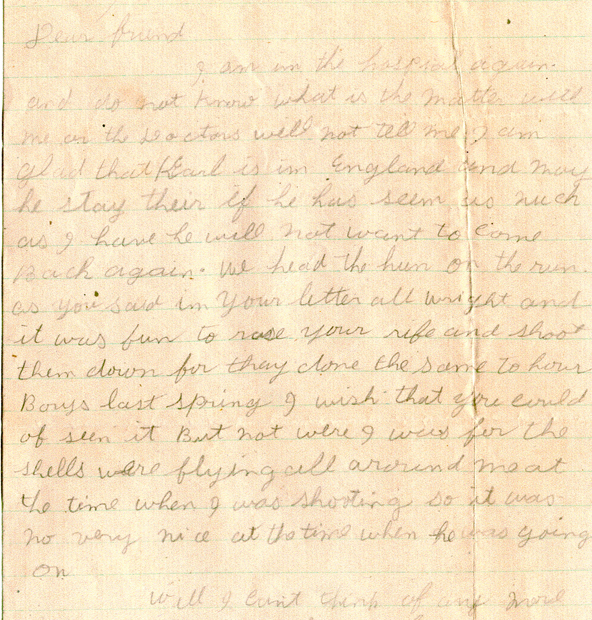 Dear friend
I am im the hospial again.
and do not know what is the matter with
me or the Doctors will not tell me I am
glad that Earl is im England and may
he stay their if he has seem as much
as I have he will not want to come
Back again. We head the hun on the run.
as you said im your letter all wright and
it was fun to rase your rife and shoot
them down for they done the same to hour
Boys last spring I wish that you could
of seen it But not were I was for the
shells were flying all around me at
the time when I was shooting so it was
no very nice at the time when he was going
on
Will I cant think of any more